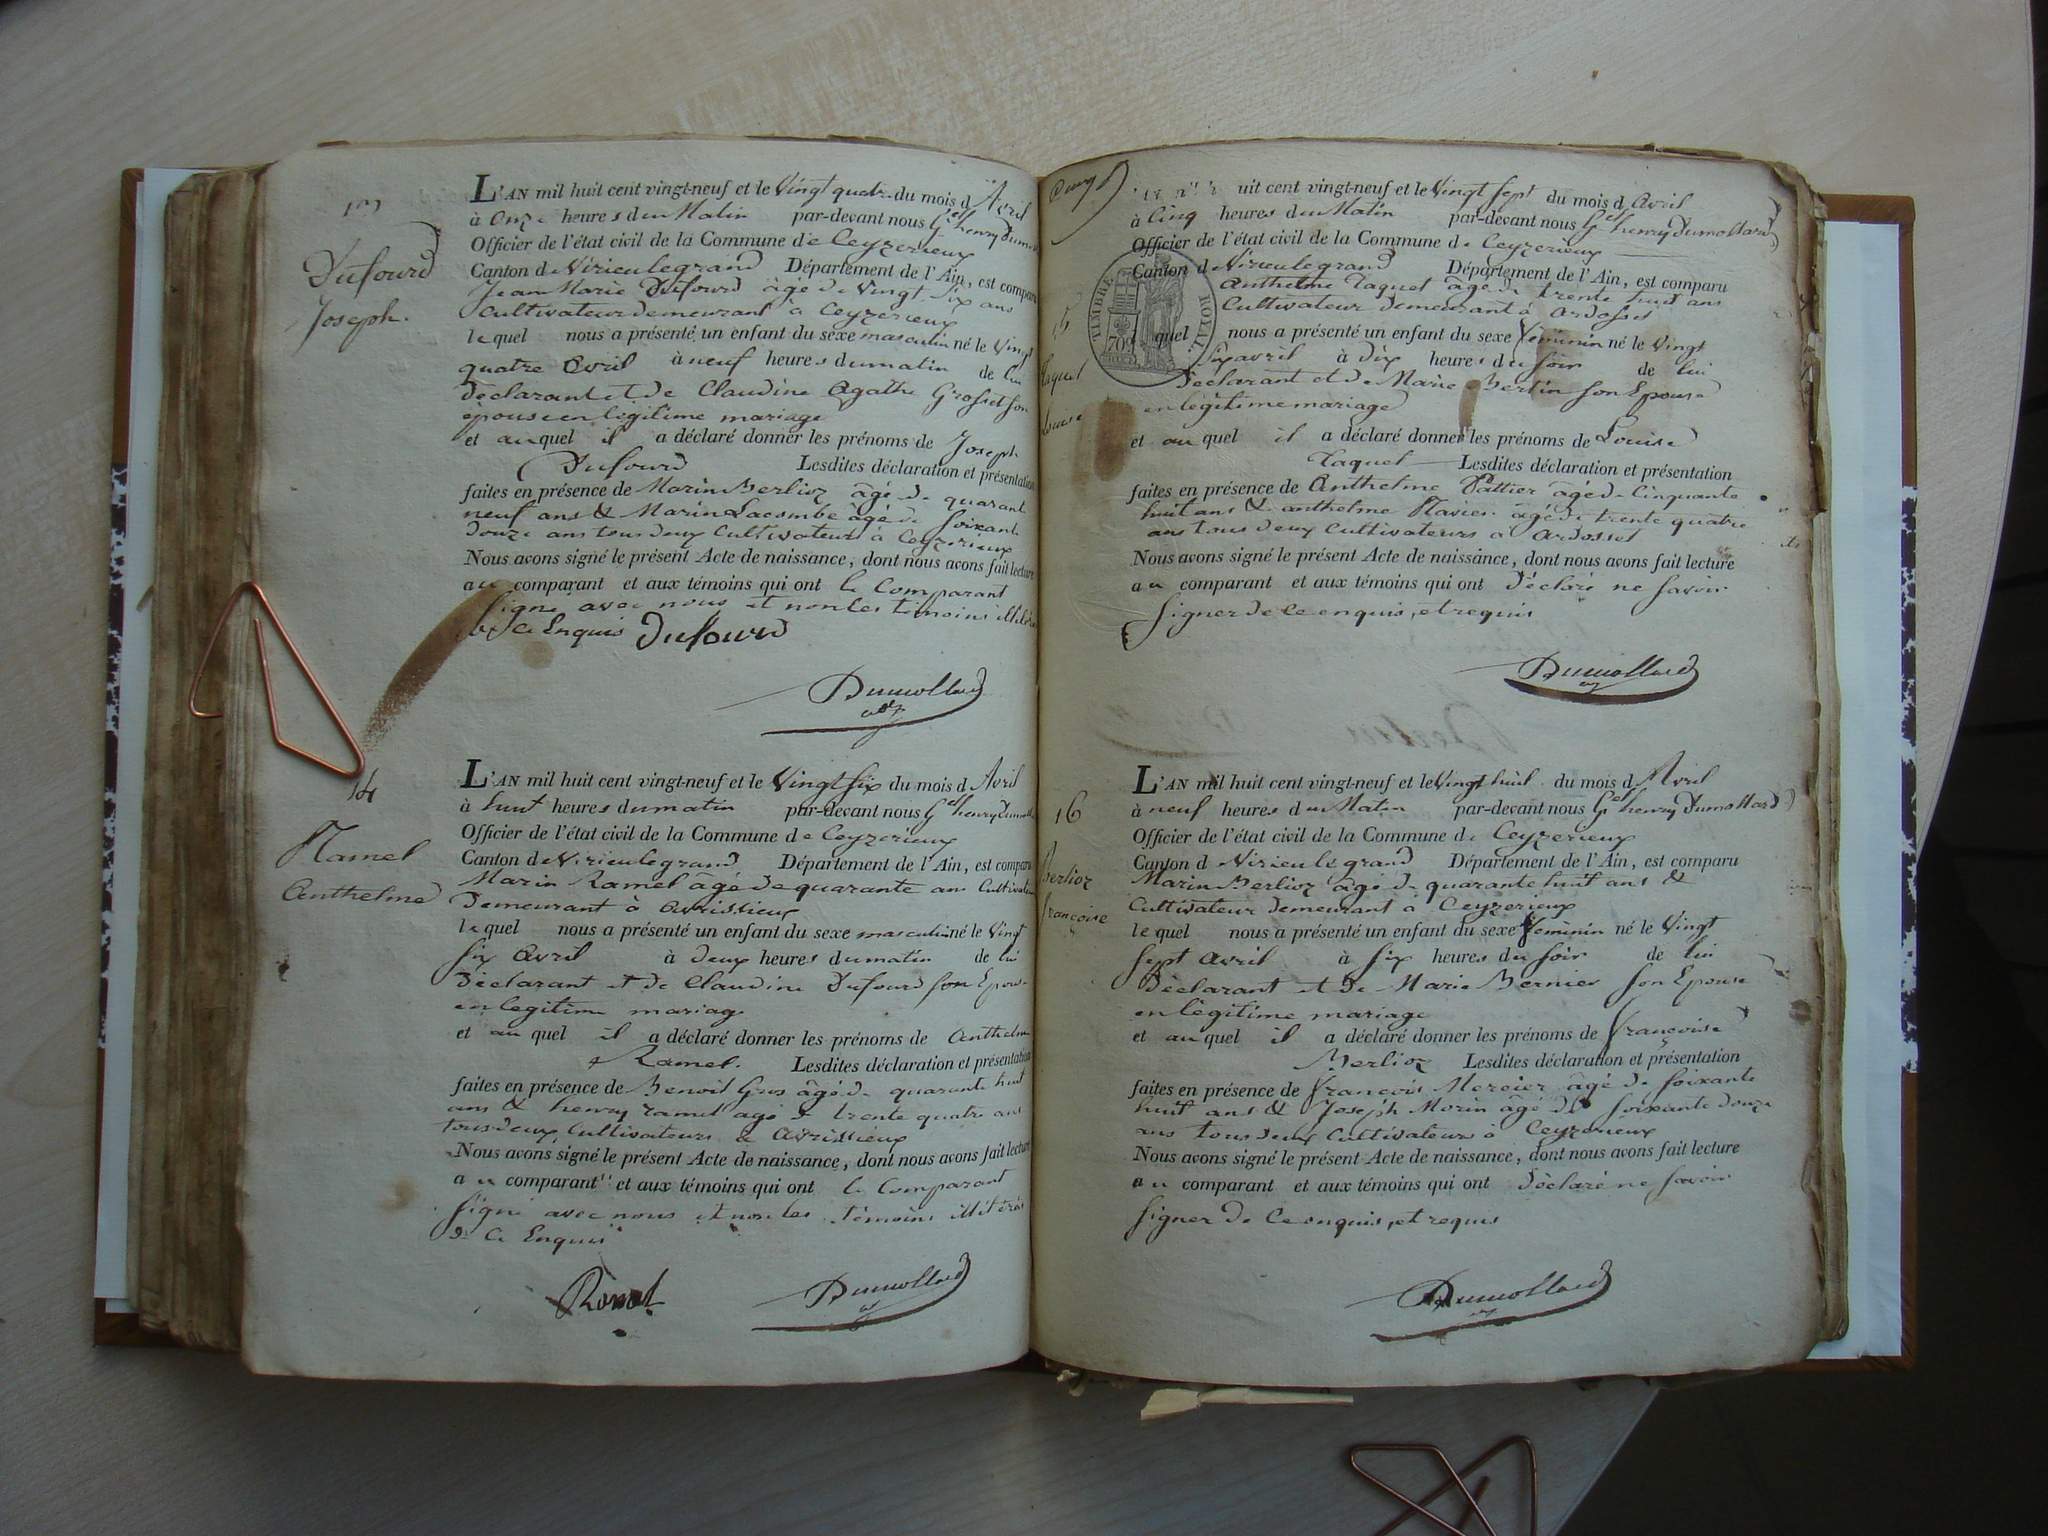 13
Dufourd
Joseph.
L'AN mil huit cent vingt-neuf et le Vingt quatre du mois d Avril
à Onze heures du Matin par-devant nous Get henry Dumoll
Officier de l'état civil de la Commune de Ceyzerieux
Canton d Virieulegrand Département de l'Ain, est comparu
Jean Marie Dufourd âgé de Vingt Six ans
Cultivateur demeurant à Ceyzerieux
lequel nous a présenté un enfant du sexe masculin né le Vingt
quatre Avril à neuf heures du matin de lui
Déclarant et de Claudine Agathe Grosset son
épouse en légitime mariage
et auquel il a déclaré donner les prénoms de Joseph
Dufourd Lesdites déclaration et présentation
faites en présence de Marin Berlioz âgé de quarant
neuf ans & Marin Lacombe âgé de Soixant
Douze ans tous deux Cultivateurs à Ceyzerieux
Nous avons signé le présent Acte de naissance, dont nous avons fait lecture
au comparant et aux témoins qui ont le Comparant
Signé avec nous et non les témoins
de Ce Enquis Dufourd
Dumollard
14
Ramel
Anthelme
L'AN mil huit cent vingt-neuf et le Vingt six du mois d Avril
à huit heures du matin par-devant nous Get henry Dumoll
Officier de l'état civil de la Commune de Ceyzerieux
Canton de Virieulegrand Département de l'Ain, est comparu
Marin Ramel âgé de quarante ans Cultivateur
Demeurant à Avrissieux
lequel nous a présenté un enfant du sexe masculin né le Vingt
six Avril à deux heures du matin de lui
Déclarant et de Claudine Dufourd son Epouse
en légitime mariage
et auquel il a déclaré donner les prénoms de Anthelme
Ramel. Lesdites déclaration et présentation
faites en présence de Benoit Gros âgé de quarante huit
ans & henry ramel agé de trente quatre ans
tous deux Cultivateurs à Avrissieux
Nous avons signé le présent Acte de naissance, dont nous avons fait lecture
au comparant et aux témoins qui ont le Comparant
Signé avec nous et non les témoins illitérés
de Ce Enquis
Dumollard
uit cent vingt-neuf et le Vingt Sept du mois d Avril
à Cinq heures du Matin par-devant nous Get henry Dumollard
Officier de l'état civil de la Commune de Ceyzerieux
Canton d Virieulegrand Département de l'Ain, est comparu
TIMBRE ROYAL
70c
15
Taquet
Louise
Anthelme Taquet âgé de trente huit ans
Cultivateur demeurant à Ardosset
quel nous a présenté un enfant du sexe féminin né le Vingt
Six avril à Dix heures du Soir de lui
Déclarant et de Marie Berlin son Epouse
en légitime mariage
et auquel il a déclaré donner les prénoms de Louise
Taquet Lesdites déclaration et présentation
faites en présence de Anthelme Pattier âgé de Cinquante
huit ans & anthelme âgé de trente quatre
ans tous deux Cultivateurs à Ardosset
Nous avons signé le présent Acte de naissance, dont nous avons fait lecture
au comparant et aux témoins qui ont Déclaré ne Savoir
Signer de Ce enquis, et requis
Dumollard
16
Berlioz
françoise
L'AN mil huit cent vingt-neuf et le Vingt huit du mois d Avril
à neuf heures du Matin par-devant nous Get henry Dumollard
Officier de l'état civil de la Commune de Ceyzerieux
Canton d Virieu le grand Département de l'Ain, est comparu
Marin Berlioz âgé de quarante huit ans &
Cultivateur demeurant à Ceyzerieux
lequel nous a présenté un enfant du sexe féminin né le Vingt
Sept Avril à Six heures du Soir de lui
Déclarant et de Marie Bernier son Epouse
en légitime mariage
et auquel il a déclaré donner les prénoms de françoise
Berlioz Lesdites déclaration et présentation
faites en présence de françois Mercier âgé de Soixante
huit ans & Joseph Morin âgé de Soixante Douze
ans tous deux Cultivateurs à Ceyzerieux
Nous avons signé le présent Acte de naissance, dont nous avons fait lecture
au comparant et aux témoins qui ont Déclaré ne Savoir
Signer de Ce enquis, et requis
Dumollard